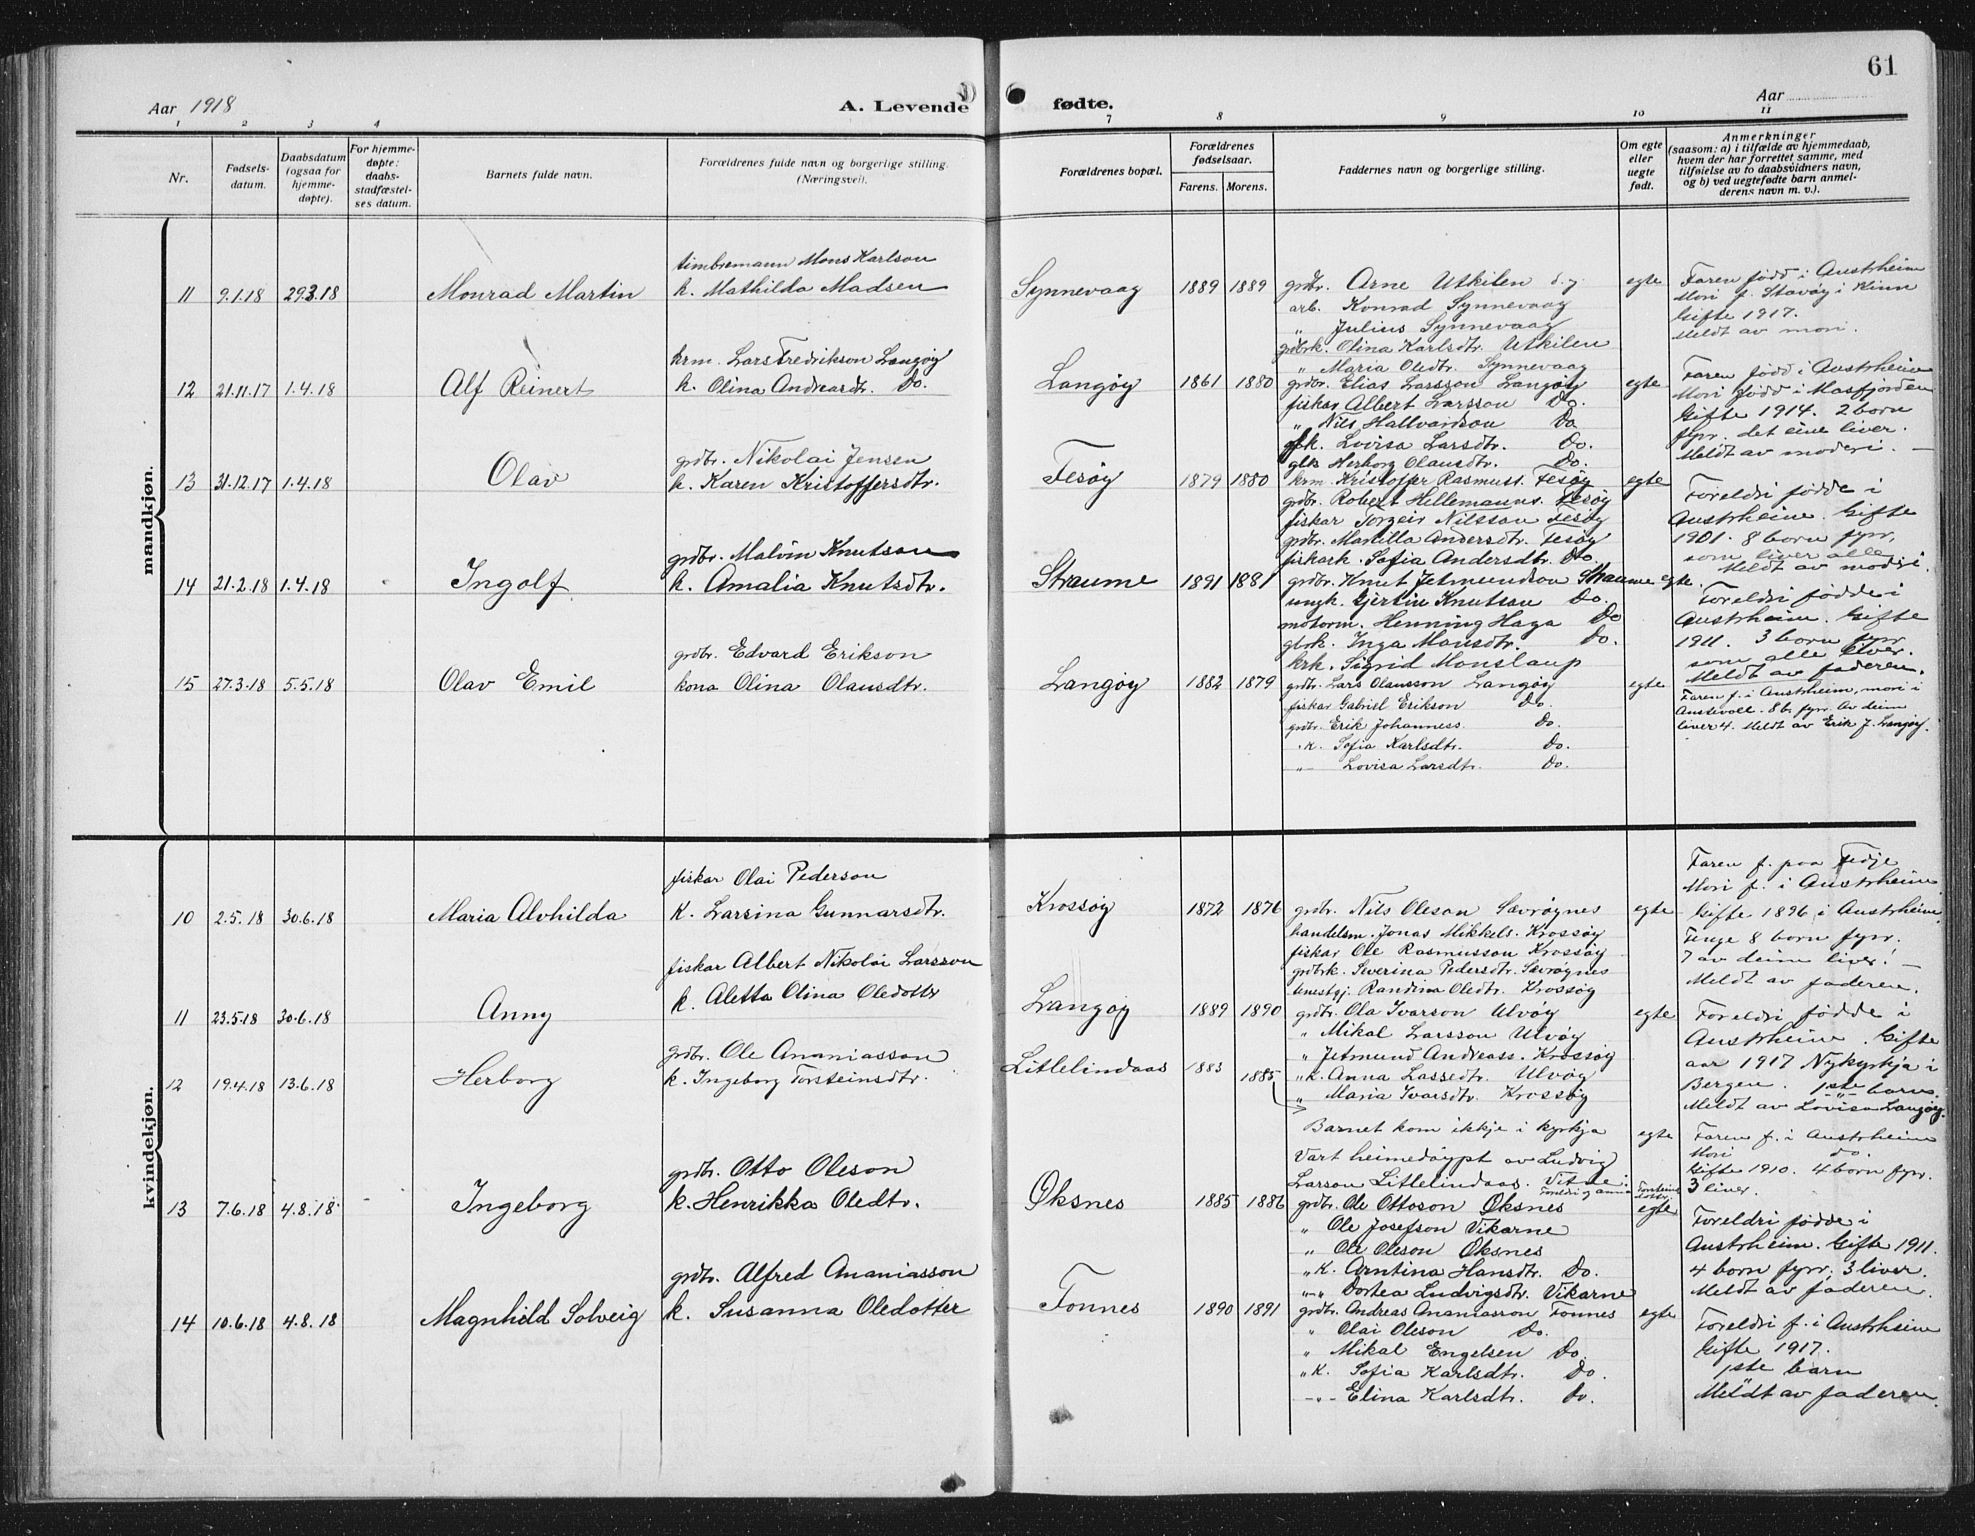 61
Aar 1918
A. Levende fødte.
Aar
1 2 3 4 7 8 9 10 11
Nr.
Fødsels-
datum.
Daabsdatum
(ogsaa for
hjemme-
døpte).
For hjemme-
døpte:
daabs-
stadfæstel-
ses datum.
Barnets fulde navn.
Forældrenes fulde navn og borgerlige stilling.
(Næringsvei).
Forældrenes bopæl.
Forældrenes
fødselsaar.
Farens. Morens.
Faddernes navn og borgerlige stilling.
Om egte
eller
uegte
født.
Anmerkninger
(saasom: a) i tilfælde av hjemmedaab,
hvem der har forrettet samme, med
tilføielse av to daabsvidners navn,
og b) ved uegtefødte barn anmel-
derens navn m. v.).
mandkjøn.
timbremann Mons Karlson
11 9.1.18 29.3.18 Monrad Martin k. Mathilda Madsen
Synnevaag 1889 1889 grdbr. Arne Utkilen d.y. egte
arb. Konrad Synnevaag
" Julius Synnevaag
grdbrk. Olina Karlsdtr. Utkilen
" Maria Oledtr. Synnevaag
Faren fødd i Austrheim
Mori f. Stavøy i Kinn
Gifte 1917.
Meldt av mori.
krm. Lars Fredrikson Langøy
12 21.11.17 1.4.18 Alf Reinert k. Olina Andreasdtr. Do.
Langøy 1861 1880 grdbr. Elias Larsson Langøy egte
fiskar Albert Larsson Do.
" Nils Hallvardson Do
gbk. Lovisa Larsdtr. Do.
gbk Herborg Olausdtr. Do.
Faren fødd i Austrheim
Mori fødd i Masfjorden
Gifte 1914. 2 born
fyrr. det eine liver.
Meldt av moderi.
grdbr. Nikolai Jensen
13 31.12.17 1.4.18 Olav k. Karen Kristoffersdtr.
Fesøy 1879 1880 krm. Kristoffer Rasmuss. Fesøy egte
grdbr. Robert Hellemanns. Fesøy
fiskar Torgeir Nilsson Fesøy
grdbr. Marilla Andersdtr. Fesøy
fiskark. Sofia Andersdtr. Do.
Foreldri fødde i
Austrheim. Gifte
1901. 8 born fyrr,
som liver alle
Meldt av moderi.
grdbr. Malvin Knutson
14 21.2.18 1.4.18 Ingolf k. Amalia Knutsdtr.
Straume 1891 1881 grdbr. Knut Jetmundson Straume egte.
ungk. Gjertin Knutson Do.
motorm. Henning Haga Do
gbrk. Inga Monsdtr. Do.
krk. Sigrid Monslaup
Foreldri fødde i
Austrheim. Gifte
1911. 3 born fyrr
som alle liver.
Meldt av faderen.
grdbr. Edvard Erikson
15 27.3.18 5.5.18 Olav Emil kona Olina Olausdtr.
Langøy 1882 1879 grdbr. Lars Olausson Langøy egte
fiskar Gabriel Erikson Do.
grdbr. Erik Johanness Do.
" k. Sofia Karlsdtr. Do.
" Lovisa Larsdtr. Do.
Faren f. i Austrheim, mori i
Austevoll. 8 b. fyrr. Av deim
liver 4. Meldt av Erik J. Langøy.
kvindekjøn.
fiskar Olai Pederson
10 2.5.18 30.6.18 Maria Alvhilda k. Larsina Gunnarsdtr.
Krossøy 1872 1876 grdbr. Nils Oleson Sævrøynes egte
handelsm. Jonas Mikkels. Krossøy
fiskar Ole Rasmusson Krossøy
grdbrk. Severina Pedersdtr. Sævrøynes
tenestgj. Randina Oledtr. Krossøy
Faren f. paa Fedje
Mori f. i Austrheim
Gifte 1896 i Austrheim
Tenge 8 born fyrr.
7 av deim liver.
Meldt av faderen.
fiskar Albert Nikolai Larsson
11 23.5.18 30.6.18 Anny k. Aletta Olina Oledottr
Langøy 1889 1890 grdbr. Ola Ivarson Ulvøy egte
" Mikal Larsson Ulvøy
" Jetmund Andreass. Krossøy
" k. Anna Lassedtr. Ulvøy
" Maria Ivarsdtr. Krossøy
Foreldri fødde i
Austrheim. Gifte
aar 1917 Nykyrkja i
Bergen. 1ste barn
Meldt av Lovisa Langøy.
grdbr. Ole Ananiasson
12 19.4.18 13.6.18 Herborg k. Ingeborg Torsteinsdtr.
Litlelindaas 1883 1885
Barnet kom ikkje i kyrkja egte
Vart heimedøypt av Ludvig
Larson Litlelindaas. Vitne:
Foreldri og Anna Torsteinsdottr.
Faren f. i Austrheim
Mori do.
Gifte 1910. 4 born fyrr.
3 liver.
grdbr. Otto Oleson
13 7.6.18 4.8.18 Ingeborg k. Henrikka Oledtr.
Øksnes 1885 1886 grdbr. Ole Ottoson Øksnes egte
" Ole Josefson Vikarne
" Ole Oleson Øksnes
" k. Arntina Hansdtr. Do.
" " Dortea Ludvigsdtr. Vikarne
Foreldri fødde i
Austrheim. Gifte 1911.
4 born fyrr, 3 liver.
Meldt av faderen.
grdbr. Alfred Ananiasson
14 10.6.18 4.8.18 Magnhild Solveig k. Susanna Oledotter
Fonnes 1890 1891 grdbr. Andreas Ananiasson Fonnes egte
" Olai Oleson Do.
" Mikal Engelsen Do.
" k. Sofia Karlsdtr. Do.
" Elina Karlsdtr. Do.
Foreldri f. i Austrheim
Gifte 1917.
1ste barn
Meldt av faderen.